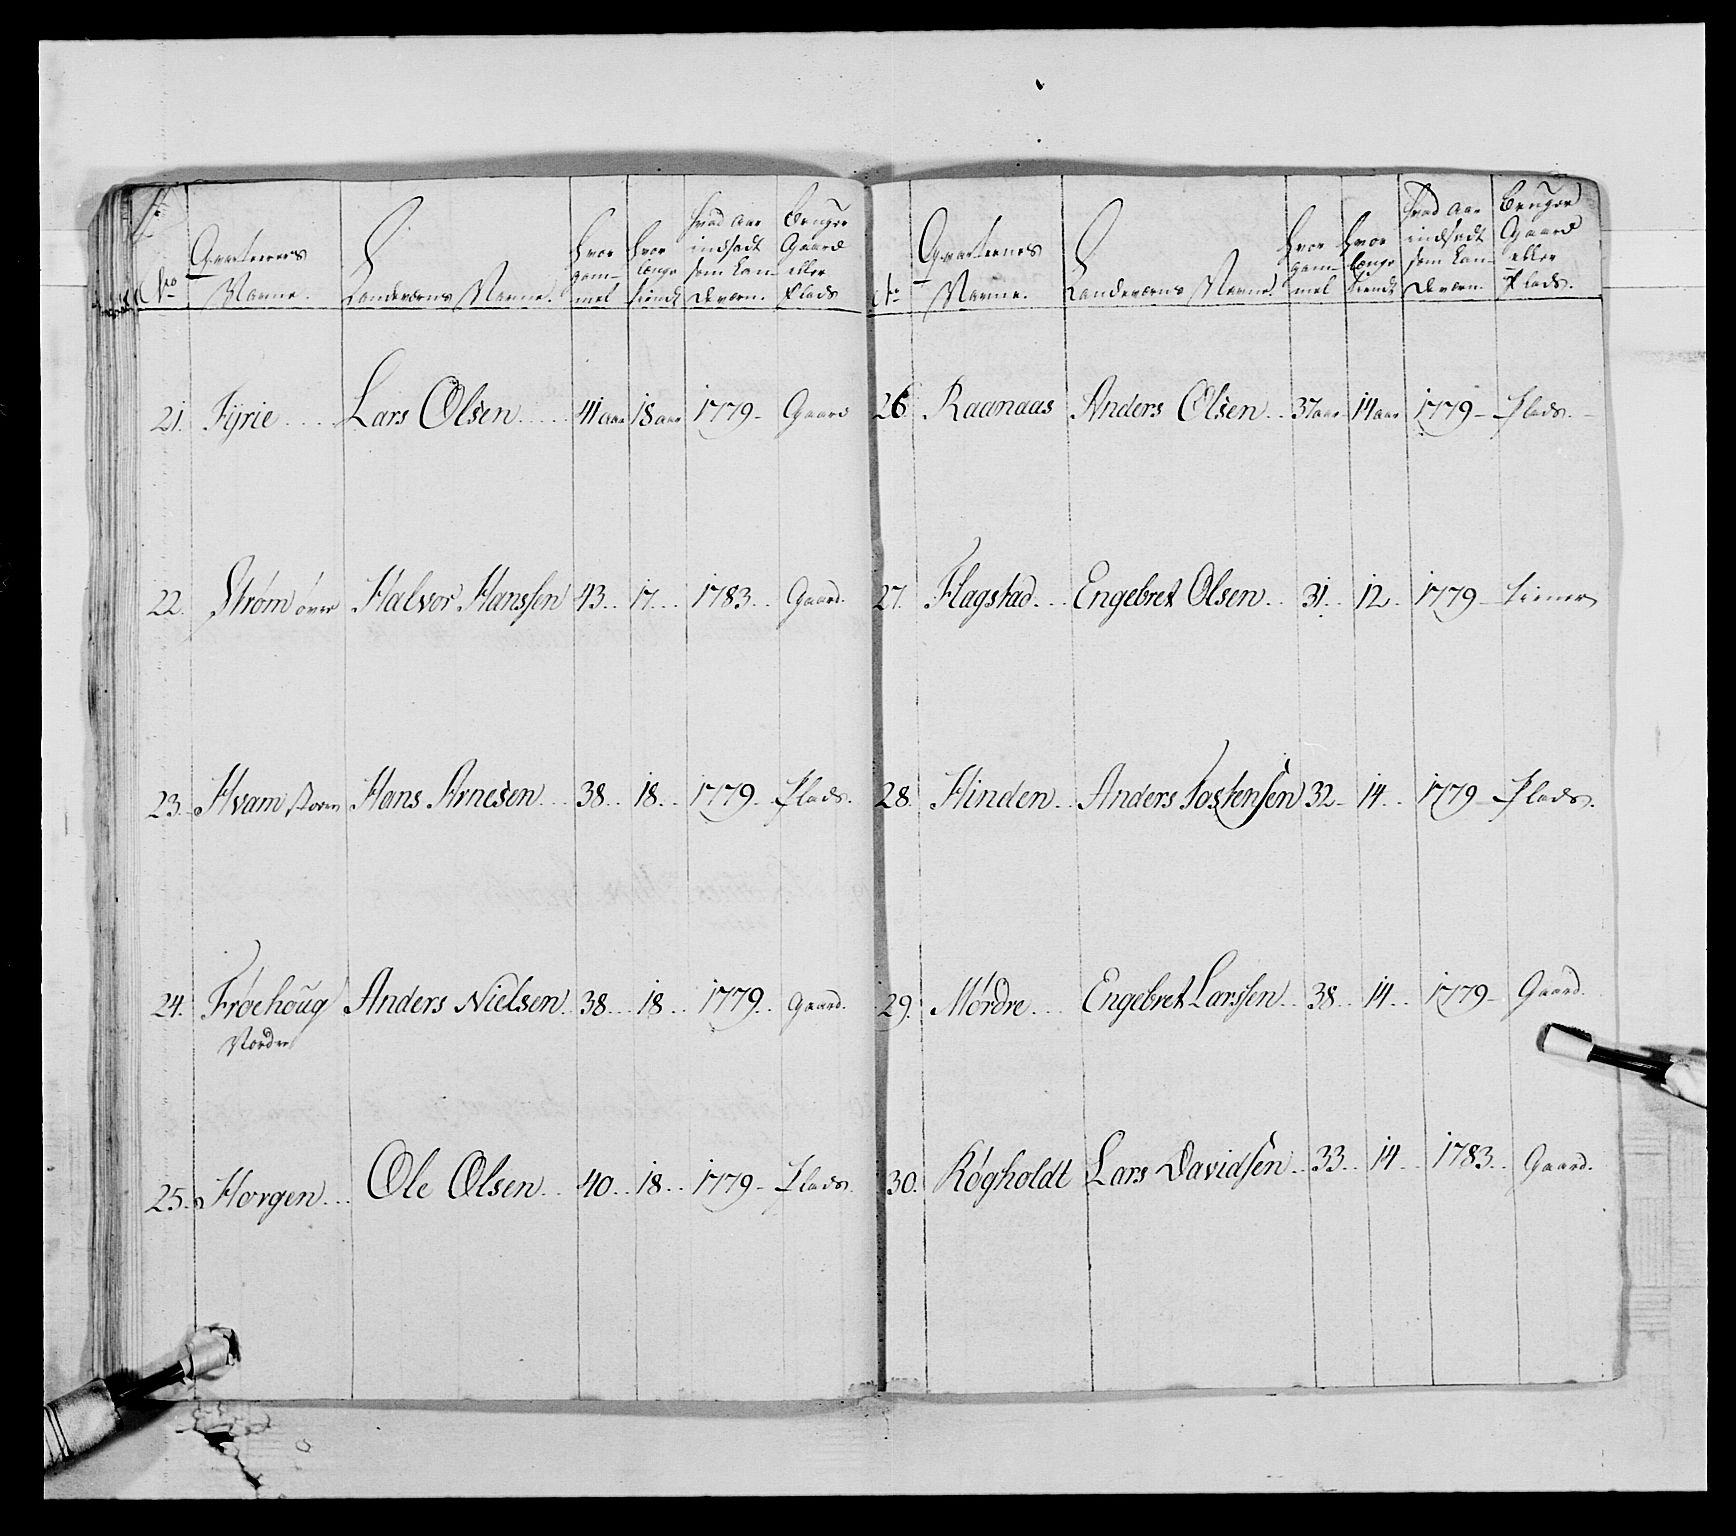 No
Qvarterers
Navne.
Landeværns Navne.
Hvor
gam-
mel
Hvor
længe
tient
Hvad Aar
indsadt
som Lan-
deværn.
Bruger
Gaard
eller
Plads
21. Fÿrie Lars Olsen 41 aar 18 aar 1779 Gaard
22. Strøm øvre Halvor Hanssen 43 17 1783 Gaard
23. Hvam Store Hans Arnesen 38 18 1779 Plads
24. Frøehoug Anders Nielsen 38 18 1779 Gaard
Nordre
25. Horgen Ole Olsen 40 18 1779 Plads
No
Qvarterers
Navne.
Landeværns Navne.
Hvor
gam-
mel
Hvor
længe
tient
Hvad Aar
indsadt
som Lan-
deværn.
Bruger
Gaard
eller
Plads.
26 Raanaas Anders Olsen 37 aar 14 aar 1779 Plads
27. Flagstad Engebret Olsen 31 12 1779 tiener
28. Hinden Anders Tostensen 32 14 1779 Plads.
29. Mørdre Engebret Larssen 38 14 1779 Gaard
30. Røgholdt Lars Davidsen 33 14 1783 Gaard.